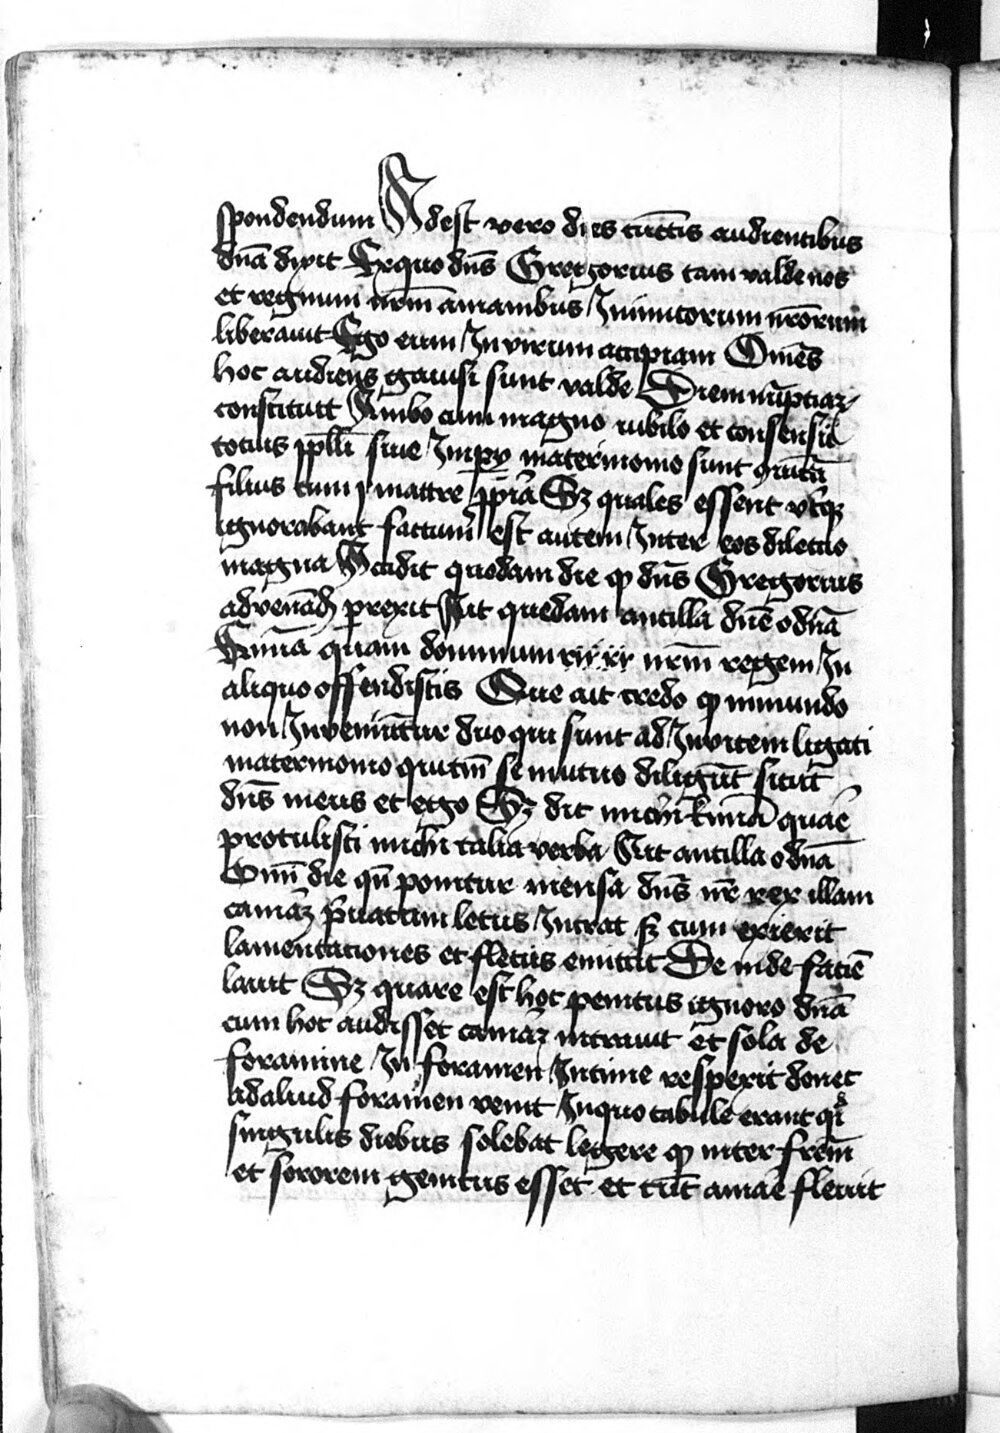 spondendum Adest vero dies cūctis audientibus
dn̄a dixit Exquo dn̄s Gregorius tam valde nos
et regnum nr̄m a manibus Inimicorum nr̄orum
liberauit Ego eum In virum accipiam Om̄es
hoc audiens gauisi sunt valde Diem nūptiaꝝ
constituit Ambo cum magno iubilo et consensu
tocius pp̄li siue Impij matermonio sunt giūcti
filius cum mattre pp̄ria Sꝫ quales essent vtqꝫ
ignorabant factum est autem Inter eos dilectio
magna Accidit quodam die ꝙ dn̄s Gregorius
ad venād̄ perexit Ait quedam ancilla dn̄e o dn̄a
kimā quam dominum nr̄m regem In
aliquo offendistis Que ait credo ꝙ in mundo
non Inveniūtur duo qui sunt ad Invicem ligati
matermonio qui tm̄ se mutuo diligūt sicut
dn̄s meus et ego Sꝫ dic michi kimā quare
protulisti michi talia verba Ait ancilla o dn̄a
Om̄i die qn̄ ponitur mensa dn̄s nr̄ rex illam
camāꝫ p̄uatam letus Intrat sꝫ cum exierit
lamentaciones et fletus emittit De inde faciē
lauit Sꝫ quare est hoc penitus ignoro dn̄a
cum hoc audisset camāꝫ intrauit et sola de
foramine In foramen Intime respexit donec
ad aliud foramen venit In quo tabule erant qͥ
singulis diebus solebat legere ꝙ inter fr̄em
et sororem genitus esset et tūc amare fleuit